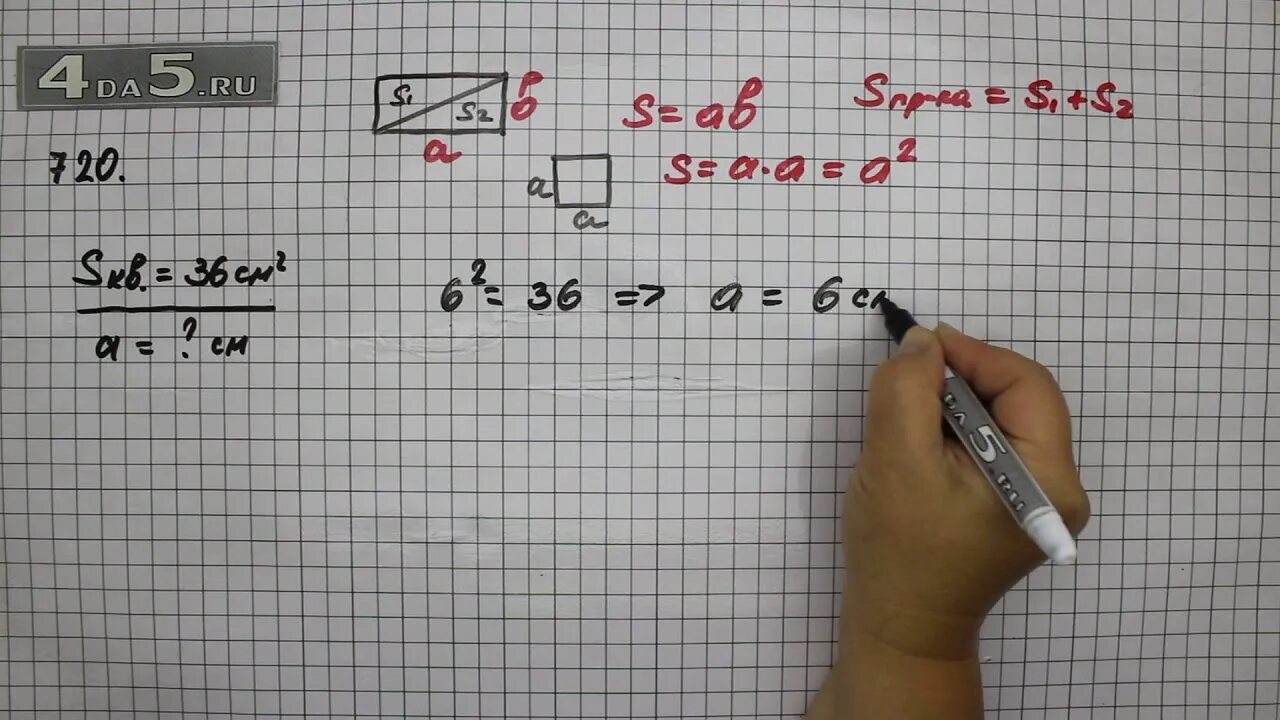 4DA5.RU
S₁
S₂
a
b
S = ab
Sпр-ка = S₁ + S₂
720.
a
a
S = a·a = a²
Sкв. = 36 см²
a = ? см
6² = 36 => a = 6 см
DA5.RU